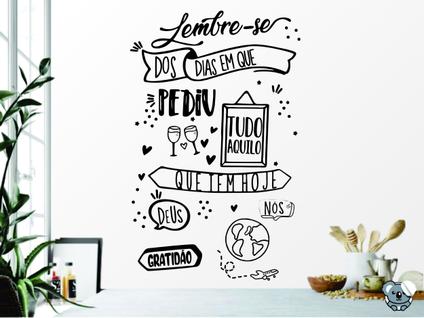 Lembre-se
DOS DIAS EM QUE
PEDIU
TUDO
AQUILO
QUE TEM HOJE
DEUS
NÓS
GRATIDÃO